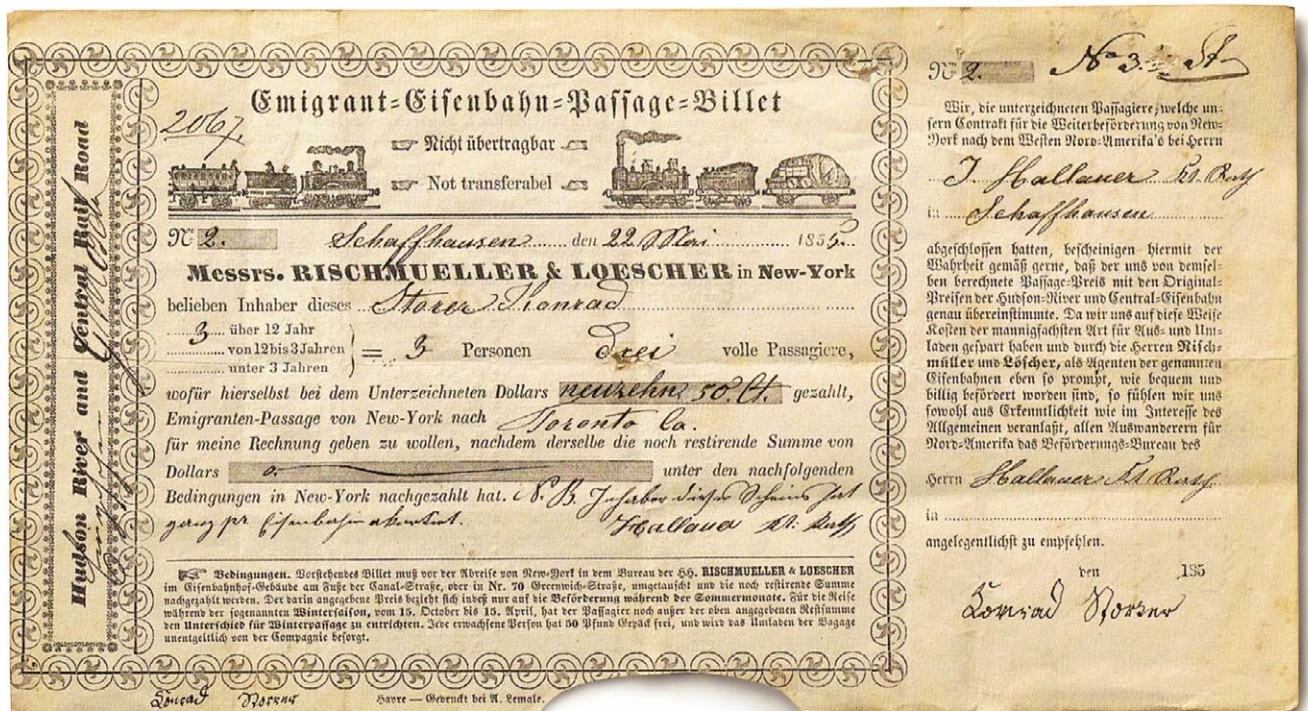 Hudson River and Central Rail Road
Emigrant=Eisenbahn=Passage=Billet
2067.
Nicht übertragbar
Not transferabel
No 2. Schaffhausen den 22 Mai 1855.
Messrs. RISCHMUELLER & LOESCHER in New-York
belieben Inhaber dieses Storer Konrad
3 über 12 Jahr
von 12 bis 3 Jahren
unter 3 Jahren
= 3 Personen Drei volle Passagiere,
wofür hierselbst bei dem Unterzeichneten Dollars neunzehn 50. Ct. gezahlt,
Emigranten-Passage von New-York nach Toronto Ca.
für meine Rechnung geben zu wollen, nachdem derselbe die noch restirende Summe von
Dollars o. unter den nachfolgenden
Bedingungen in New-York nachgezahlt hat. N. B. Inhaber dieses Scheins hat
ganz pr Eisenbahn
Hallauer
Bedingungen. Vorstehendes Billet muß vor der Abreise von New-York in dem Bureau der HH. RISCHMUELLER & LOESCHER
im Eisenbahnhof-Gebäude am Fuße der Canal-Straße, oder in Nr. 70 Greenwich-Straße, umgetauscht und die noch restirende Summe
nachgezahlt werden. Der darin angegebene Preis bezieht sich indeß nur auf die Beförderung während der Sommermonate. Für die Reise
während der sogenannten Wintersaison, vom 15. October bis 15. April, hat der Passagier noch außer der oben angegebenen Restsumme
den Unterschied für Winterpassage zu entrichten. Jede erwachsene Person hat 50 Pfund Gepäck frei, und wird das Umladen der Bagage
unentgeltlich von der Compagnie besorgt.
Konrad Storrer
Havre — Gedruckt bei A. Lemale.
No 2. No 3. St
Wir, die unterzeichneten Passagiere, welche un-
sern Contrakt für die Weiterbeförderung von New-
York nach dem Westen Nord-Amerika's bei Herrn
J. Hallauer Kt. Rath
in Schaffhausen
abgeschlossen hatten, bescheinigen hiermit der
Wahrheit gemäß gerne, daß der uns von demsel-
ben berechnete Passage-Preis mit den Original-
Preisen der Hudson-River und Central-Eisenbahn
genau übereinstimmte. Da wir uns auf diese Weise
Kosten der mannigfachsten Art für Aus- und Um-
laden gespart haben und durch die Herren Risch-
müller und Löscher, als Agenten der genannten
Eisenbahnen eben so prompt, wie bequem und
billig befördert worden sind, so fühlen wir uns
sowohl aus Erkenntlichkeit wie im Interesse des
Allgemeinen veranlaßt, allen Auswanderern für
Nord-Amerika das Beförderungs-Bureau des
Herrn Hallauer Kt. Rath
in
angelegentlichst zu empfehlen.
den 185
Konrad Storrer